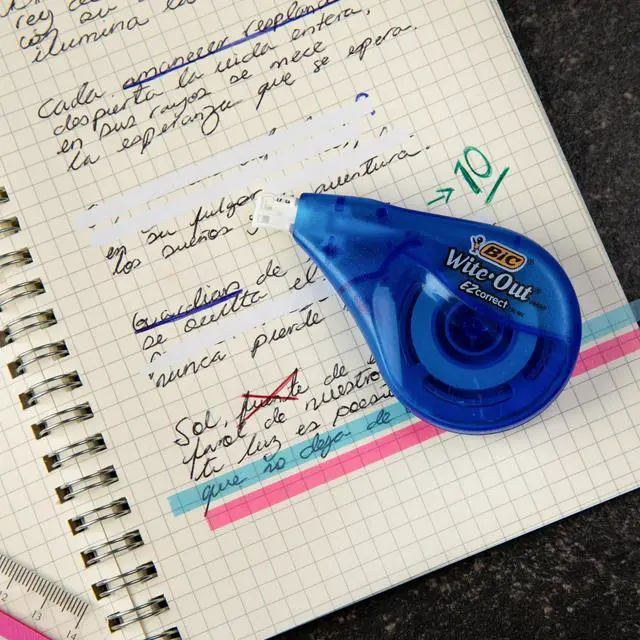 ilumina la
Cada amanecer resplan
despierta la vida entera,
en sus rayos se mece
la esperanza que se espera.
en su fulgor aventura.
los sueños s
→ 10
BIC
Wite·Out
EZ correct
Guardián de
se oculta el
nunca pierde
Sol, fuente de
farol de nuestro
tu luz es poesí
que no deja de
12 13 14